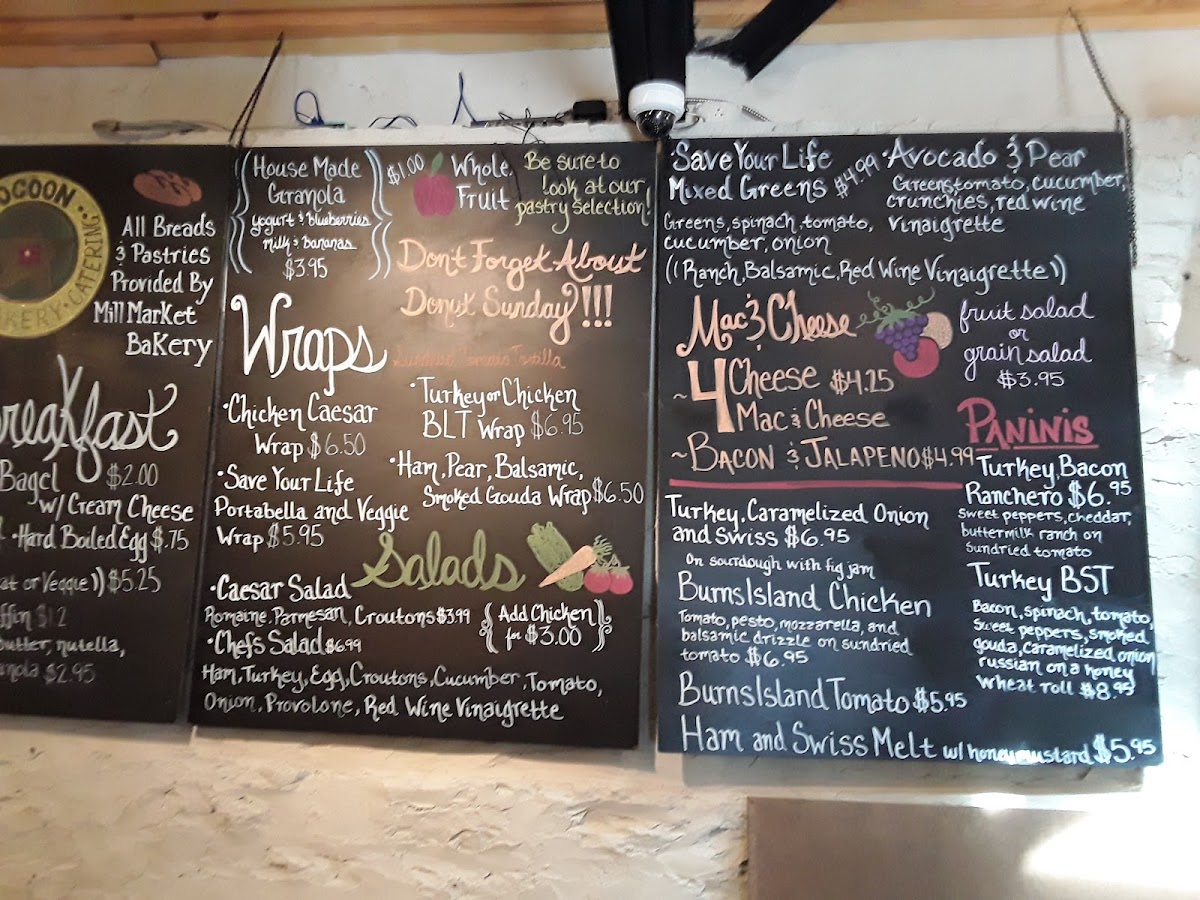 COCOON
CATERING
All Breads
& Pastries
Provided By
Mill Market
Bakery
Breakfast
Bagel $2.00
w/ Cream Cheese
• Hard Boiled Egg $.75
or Veggie)) $5.25
$12
butter, nutella,
$2.95
House Made
Granola
yogurt & blueberries
milk & bananas
$3.95
$1.00 Whole
Fruit
Be sure to
look at our
pastry selection!
Don't Forget About
Donut Sunday!!!
Wraps
Tomato Tortilla
• Chicken Caesar
Wrap $6.50
• Save Your Life
Portabella and Veggie
Wrap $5.95
• Turkey or Chicken
BLT Wrap $6.95
• Ham, Pear, Balsamic,
Smoked Gouda Wrap $6.50
Salads
• Caesar Salad
Romaine, Parmesan, Croutons $3.99
{ Add Chicken
for $3.00 }
• Chefs Salad $6.99
Ham, Turkey, Egg, Croutons, Cucumber, Tomato,
Onion, Provolone, Red Wine Vinaigrette
• Save Your Life
Mixed Greens $4.99
Greens, spinach, tomato,
cucumber, onion
((Ranch, Balsamic, Red Wine Vinaigrette))
• Avocado & Pear
Greens tomato, cucumber,
crunchies, red wine
vinaigrette
Mac & Cheese
~ 4 Cheese $4.25
Mac & Cheese
~ Bacon & Jalapeno $4.99
fruit salad
or
grain salad
$3.95
Paninis
Turkey, Caramelized Onion
and Swiss $6.95
On sourdough with fig jam
Burns Island Chicken
Tomato, pesto, mozzarella, and
balsamic drizzle on sundried
tomato $6.95
Burns Island Tomato $5.95
Ham and Swiss Melt w/ honey mustard $5.95
Turkey, Bacon
Ranchero $6.95
sweet peppers, cheddar,
buttermilk ranch on
sundried tomato
Turkey BST
Bacon, spinach, tomato,
sweet peppers, smoked
gouda, caramelized onion,
russian on a honey
wheat roll $8.95